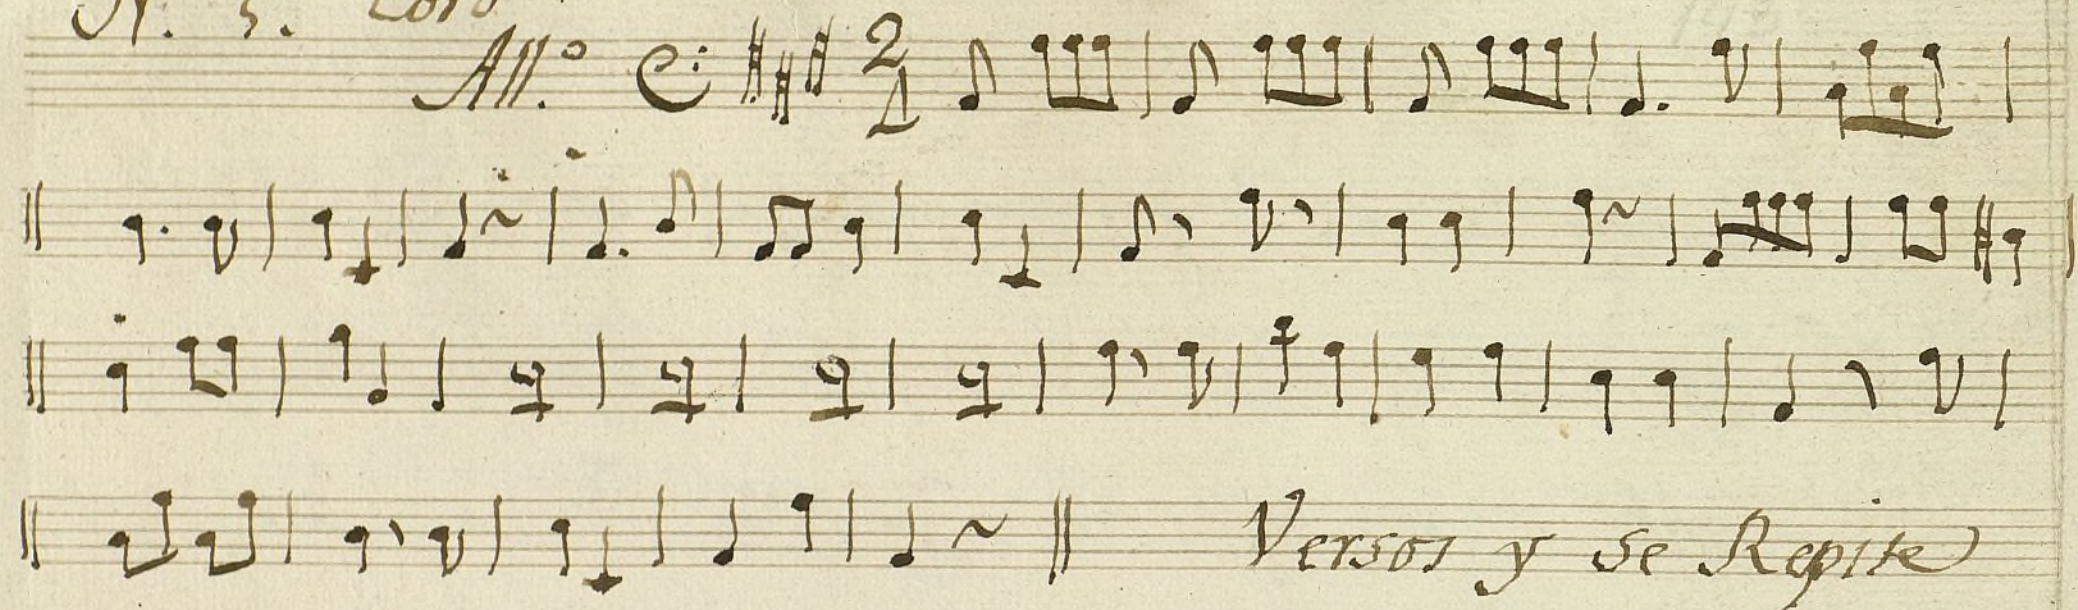 N. 5. Coro
All.º 2
4
Versos y se Repite